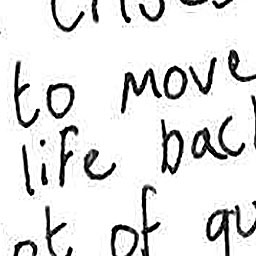 to move
life bac
ot of qu